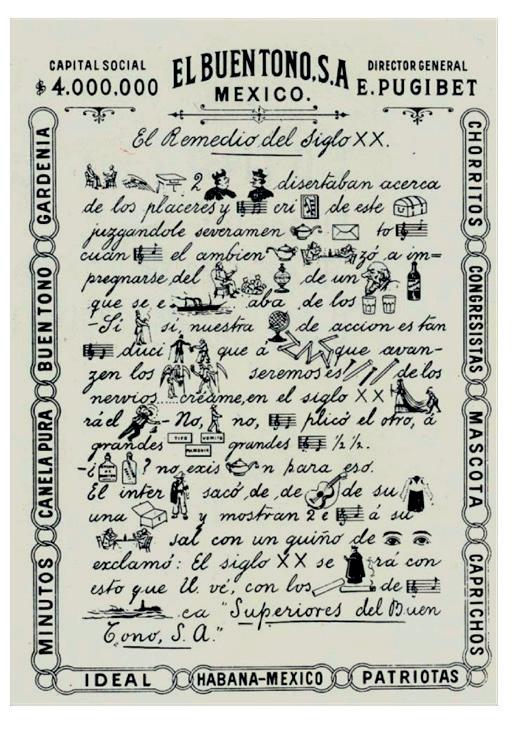 CAPITAL SOCIAL
$ 4.000,000
EL BUEN TONO, S.A
MEXICO.
DIRECTOR GENERAL
E. PUGIBET
GARDENIA
BUEN TONO
CANELA PURA
MINUTOS
El Remedio del Siglo XX.
2 disertaban acerca
de los placeres y cri de este
juzgandole severamen to
cuán el ambien zó a im=
pregnarse del de un
que se e aba de los
-Si si, nuestra de accion es tan
duci que á que avan-
zen los seremos es de los
nervios....créame, en el siglo XX
rá el -No, no, plicó el otro, á
grandes TIFO VOMITO grandes ½ ½.
-¿ ? no exis n para eso.
El inter sacó de, de de su
una y mostran 2 e á su
sal con un guiño de
exclamó: El siglo XX se rá con
esto que U. vé, con los de
ca "Superiores del Buen
Tono, S. A."
CHORRITOS
CONGRESISTAS
MASCOTA
CAPRICHOS
IDEAL
HABANA-MEXICO
PATRIOTAS